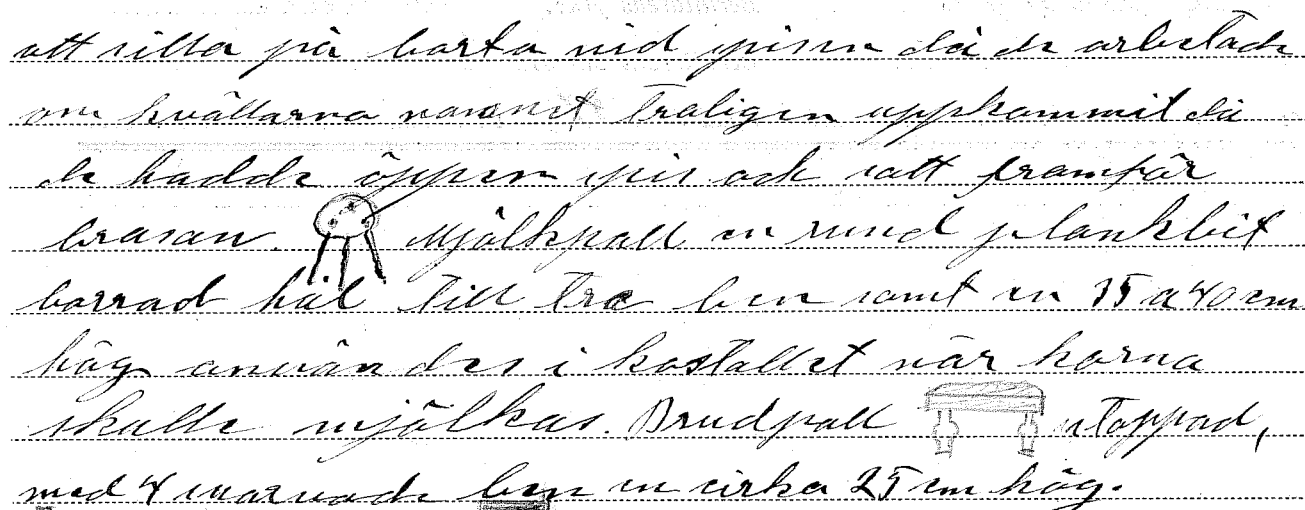 att sitta på borta vid spisen då de arbetade
om kvällarna namnet troligen uppkommit då
de hadde öppen spis och satt framför
brasan. Mjölkpall en rund plankbit
borrad hål till tre ben samt en 35 a 40 cm
hög användes i kostallet när korna
skulle mjölkas. Brudpall stoppad,
med 4 svarvade ben en cirka 25 cm hög.